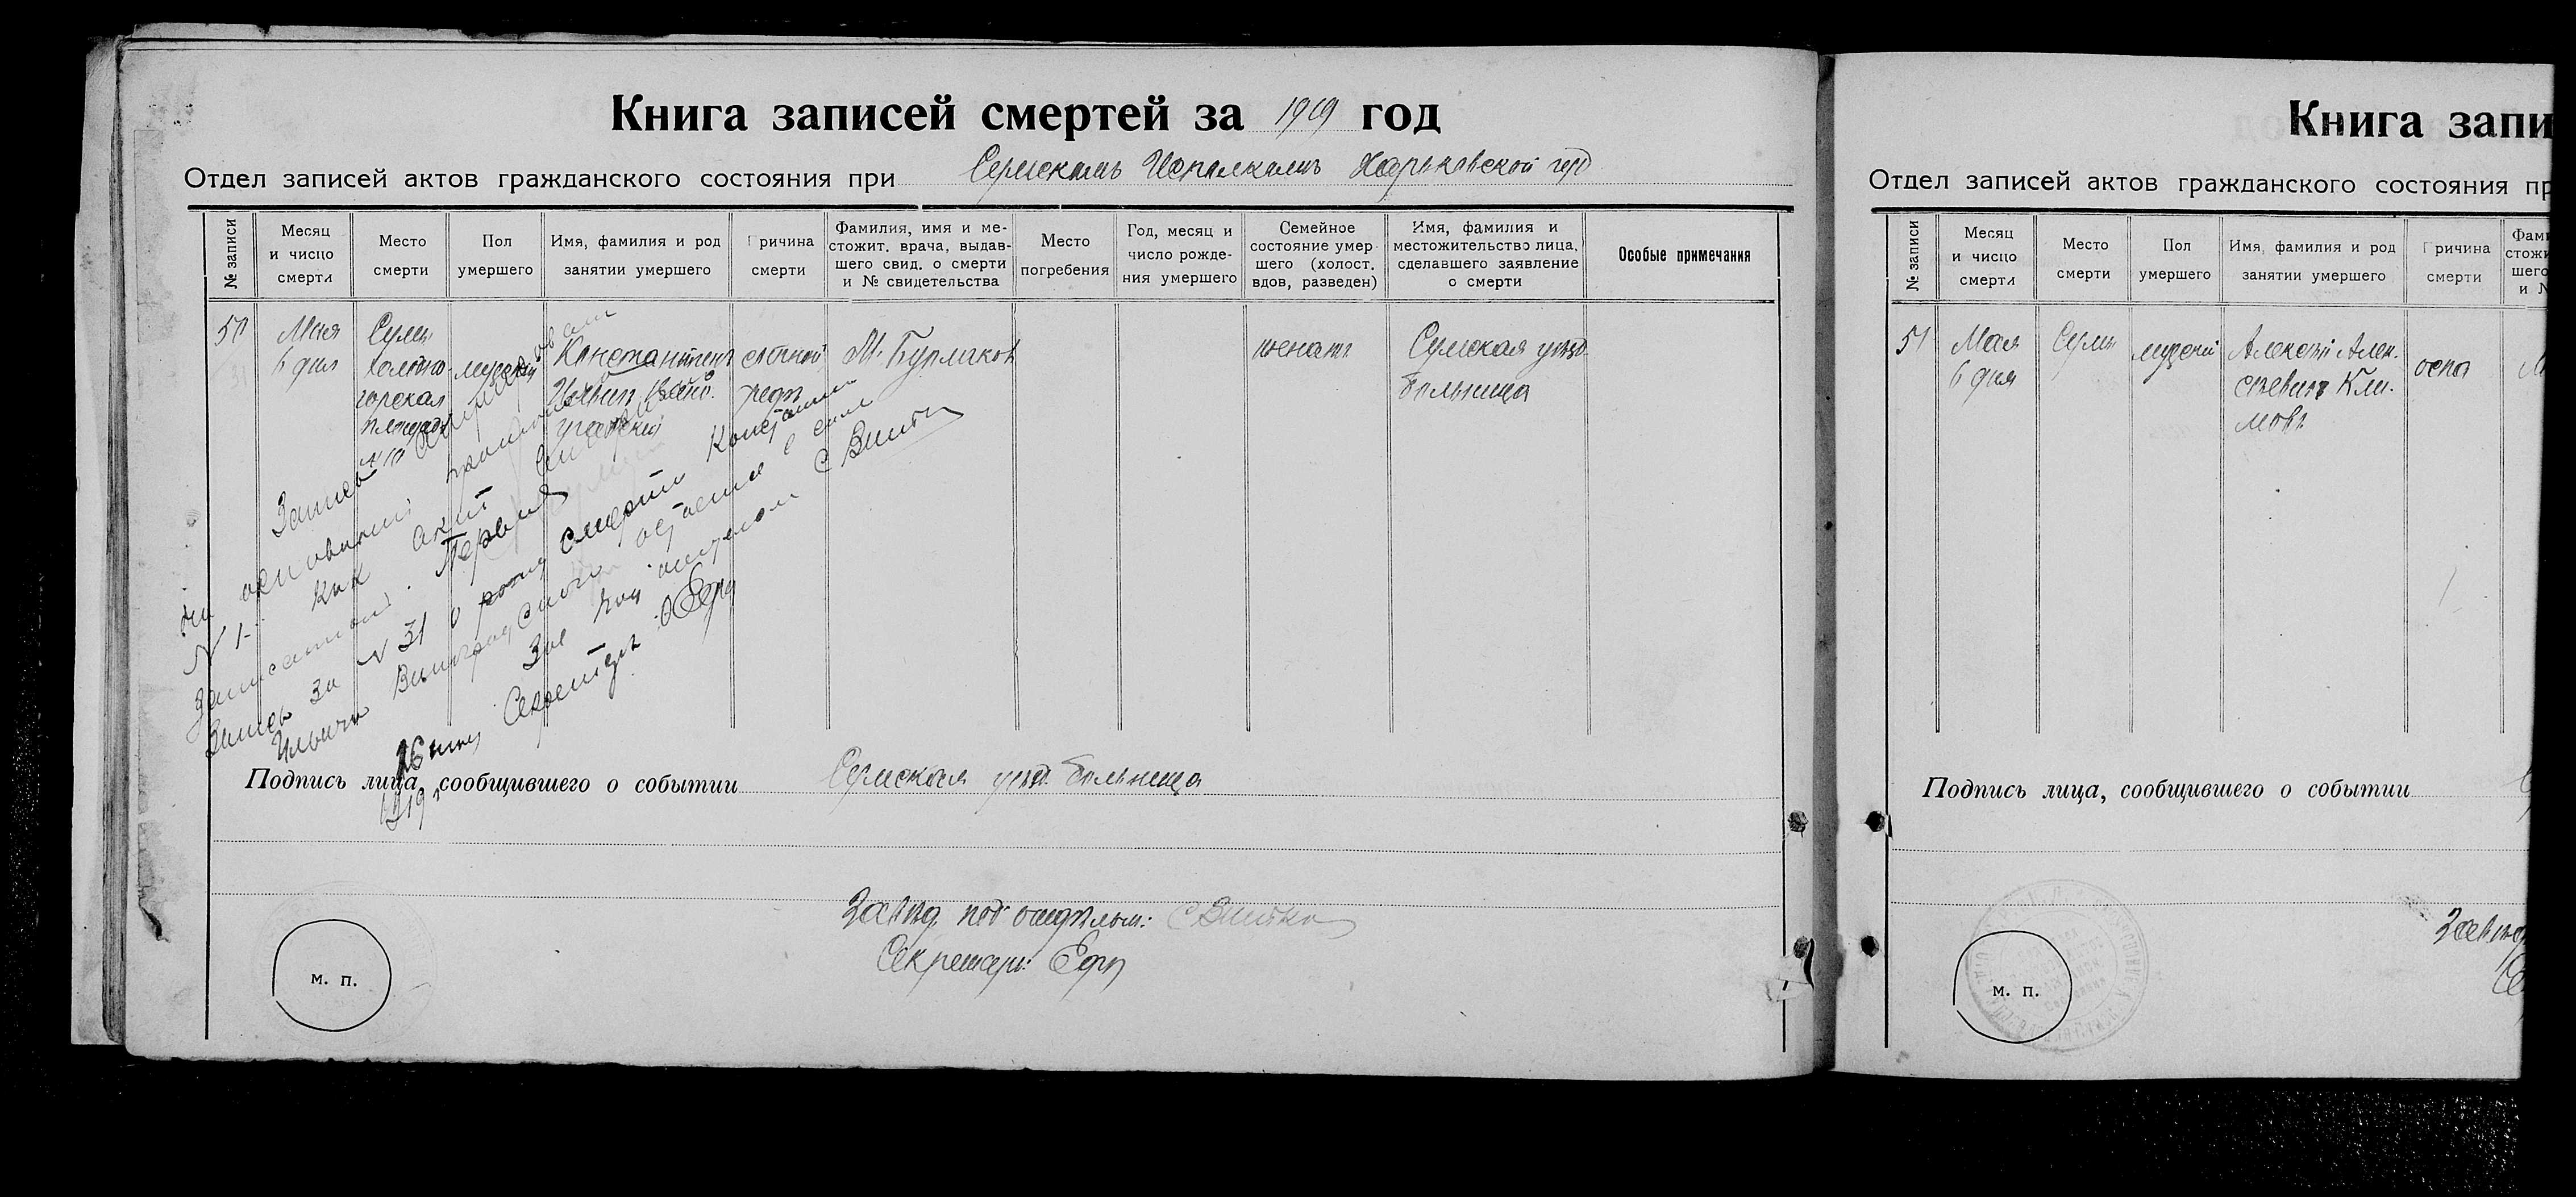 Книга записей смертей за 1919 год
Отдел записей актов гражданского состояния при Сумскомъ Исполкомъ Харьковской губ
№ записи
Месяц и число смерти
Место смерти
Пол умершего
Имя, фамилия и род занятии умершего
Причина смерти
Фамилия, имя и местожит. врача, выдавшего свид. о смерти и № свидетельства
Место погребения
Год, месяц и число рождения умершего
Семейное состояние умершего (холост. вдов, разведен)
Имя, фамилия и местожительство лица, сделавшего заявление о смерти
Особые примечания
50
Мая
6 дня
Сумы
холодно-
горская
площадь
№ 10
мужской
Константинъ
Ильичъ Вино-
градский
М. Бурлаковъ
женатъ
Сумская уѣзд.
больница
Запись
на основании
N 1. как акт
Записанный. Первая
Запись за N 31 о смерти Констан
Ильича Виноградского остается в силе
Зав под отделом С Витко
Секретарь
16
1919 г
Подпись лица, сообщившего о событии Сумская уѣзд. больница
Завѣд. под отдѣломъ: С Витко
Секретарь:
м. п.
Книга запи
Отдел записей актов гражданского состояния пр
№ записи
Месяц и число смерти
Место смерти
Пол умершего
Имя, фамилия и род занятии умершего
Причина смерти
51
Мая
6 дня
Сумы
мужской
Алексѣй Алек-
сѣевичъ Кли-
мовъ
оспа
Подпись лица, сообщившего о событии
м. п.